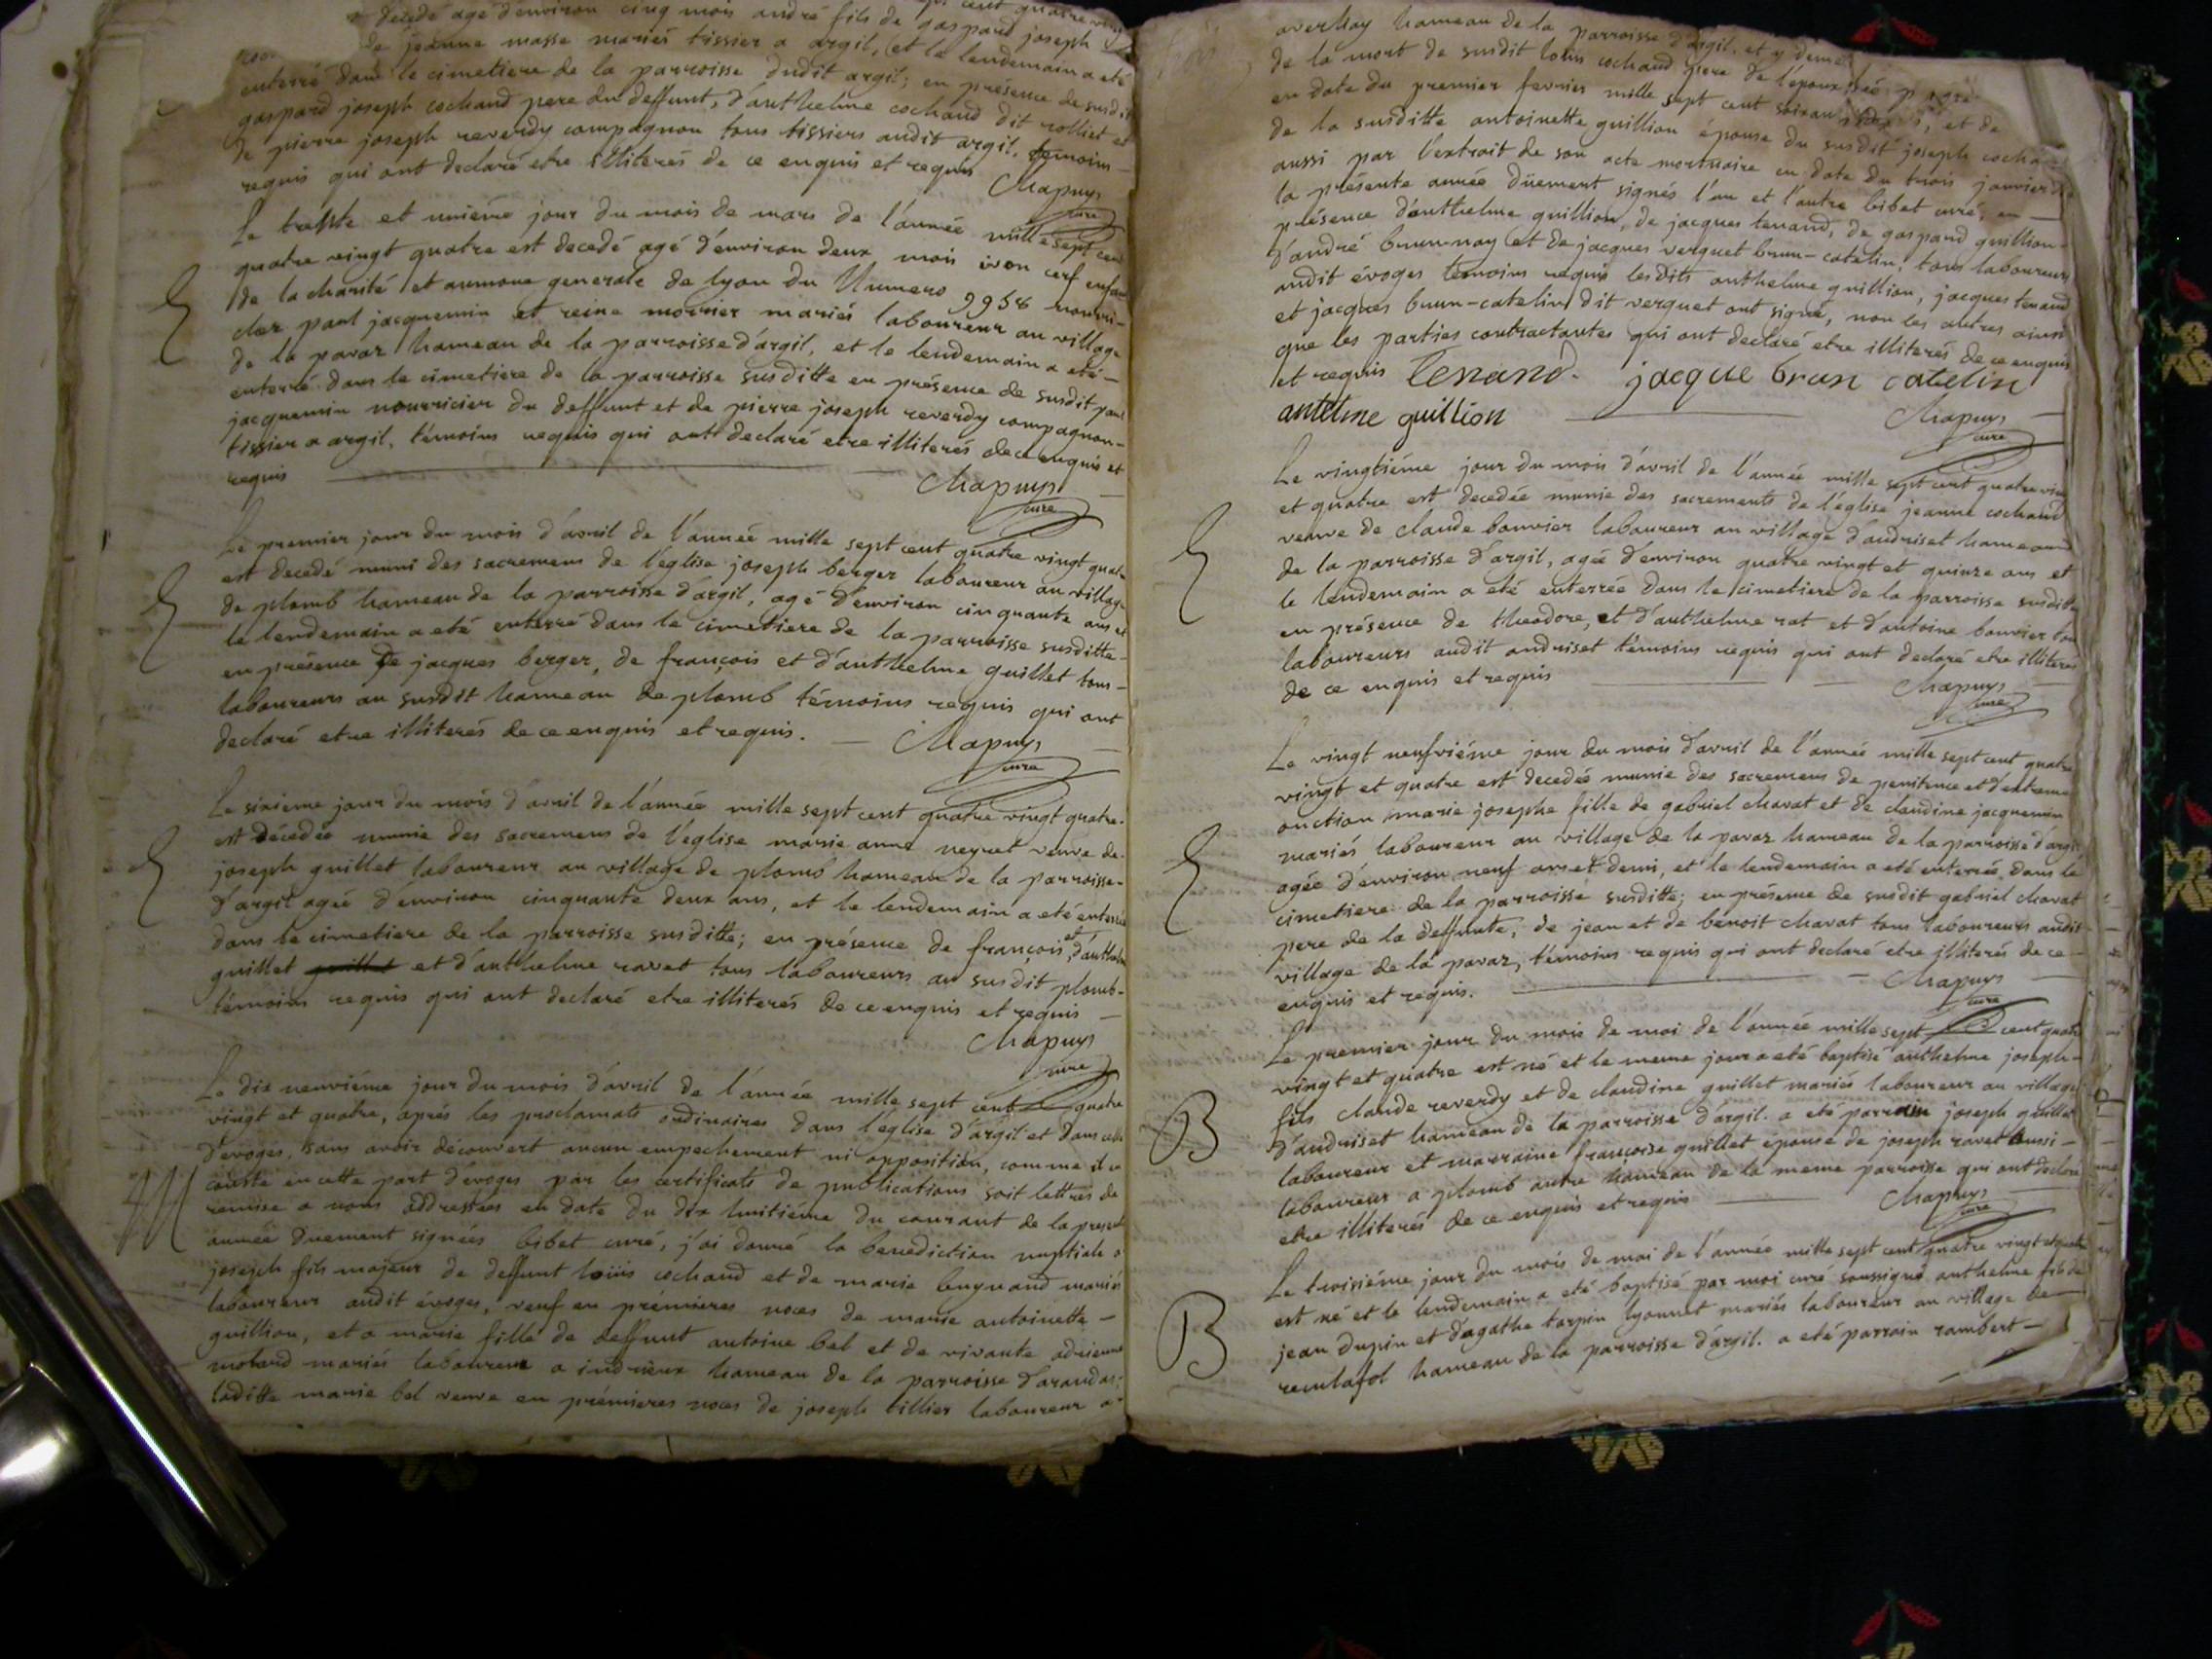 decedé agé d'environ cinq mois andré fils de gaspard joseph
de jeanne masse mariés tissier a argil, et le lendemain a eté
enterré dans le cimetiere de la parroisse dudit argil; en présence de susdit
gaspard joseph cochand pere du deffunt, d'anthelme cochand dit rolliet et
de pierre joseph reverdy compagnon tous tissiers audit argil, temoins
requis qui ont declaré etre illiterés de ce enquis et requis
Chapuys
curé
Le trente et unième jour du mois de mars de l'année mille sept cent
quatre vingt quatre est decedé agé d'environ deux mois ivon cerf enfant
de la charité et aumone generale de lyon du Numero 9958 nourri
chez paul jacquemin et reine mornier mariés laboureur au village
de la pavaz hameau de la parroisse d'argil, et le lendemain a eté
enterré dans le cimetiere de la parroisse susditte en présence de susdit paul
jacquemin nourricier du deffunt et de pierre joseph reverdy compagnon
tissier a argil, témoins requis qui ont declaré etre illiterés de ce enquis et
requis
Chapuys
curé
Le premier jour du mois d'avril de l'année mille sept cent quatre vingt quatre
est decedé muni des sacremens de l'eglise joseph berger laboureur au village
de plomb hameau de la parroisse d'argil, agé d'environ cinquante ans et
le lendemain a eté enterré dans le cimetiere de la parroisse susditte
en présence de jacques berger, de françois et d'anthelme guillet tous
laboureurs au susdit hameau de plomb témoins requis qui ont
declaré etre illiterés de ce enquis et requis.
Chapuys
curé
Le sixieme jour du mois d'avril de l'année mille sept cent quatre vingt quatre
est décédée munie des sacremens de l'eglise marie anne neyret veuve de
joseph guillet laboureur au village de plomb hameau de la parroisse
d'argil agée d'environ cinquante deux ans, et le lendemain a eté enterrée
dans le cimetiere de la parroisse susditte; en présence de françois et d'anthelme
guillet guillet et d'anthelme ravet tous laboureurs au susdit plomb
témoins requis qui ont declaré etre illiterés de ce enquis et requis
Chapuys
curé
Le dix neuvième jour du mois d'avril de l'année mille sept cent quatre
vingt et quatre, aprés les proclamats ordinaires dans l'église d'argil et dans celle
d'évoges, sans avoir découvert aucun empechement ni opposition, comme il
M conste en cette part d'évoges par les certificats de publications soit lettres de
remise a nous addressées en date du dix huitième du courant de la presente
année duement signées bibet curé, j'ai donné la benediction nuptiale a
joseph fils majeur de deffunt loüis cochand et de marie buynand mariés
laboureur audit évoges, veuf en prémieres noces de marie antoinette
guillion, et a marie fille de deffunt antoine bel et de vivante adrienne
molard mariés laboureur a indrieux hameau de la parroisse d'arandas;
laditte marie bel veuve en prémieres noces de joseph tillier laboureur a
averliay hameau de la parroisse d'argil. et y deme
de la mort de susdit loüis cochand pere de l'epoux
en date du premier fevrier mille sept cent soixan et de
de la susditte antoinette guillion épouse du susdit joseph cocha
aussi par l'extrait de son acte mortuaire en date du trois janvier de
la présente année düement signés l'un et l'autre bibet curé, en
présence d'anthelme guillion, de jacques tenand, de gaspard guillion
d'andré brun-nay et de jacques verguet brun-catelin, tous laboureurs
audit évoges temoins requis lesdits anthelme guillion, jacques tenand
et jacques brun-catelin dit verguet ont signé, non les autres ainsi
que les parties contractantes qui ont declaré etre illiterés de ce enquis
et requis Tenand. jacque brun catelin
antelme guillion
Chapuys
curé
Le vingtième jour du mois d'avril de l'année mille sept cent quatre vin
et quatre est decedée munie des sacrements de l'église jeanne cochand
veuve de claude bonvier laboureur au village d'audriset hameau
de la parroisse d'argil, agée d'environ quatre vingt et quinze ans et
le lendemain a eté enterrée dans le cimetiere de la parroisse susditte
en présence de theodore, et d'anthelme rat et d'antoine bonvier tous
laboureurs audit andriset témoins requis qui ont declaré etre illiterés
de ce enquis et requis
Chapuys
curé
Le vingt neufvième jour du mois d'avril de l'année mille sept cent quatre
vingt et quatre est decedée munie des sacremens de penitence et d'extreme
onction marie josephe fille de gabriel chavat et de claudine jacquemin
mariés laboureur au village de la pavaz hameau de la parroisse d'argil
agée d'environ neuf ans et demi, et le lendemain a eté enterrée dans le
cimetiere de la parroisse susditte; en présence de susdit gabriel chavat
pere de la deffunte, de jean et de benoit chavat tous laboureurs audit
village de la pavaz, témoins requis qui ont declaré etre illiterés de ce
enquis et requis.
Chapuys
curé
Le premier jour du mois de mai de l'année mille sept cent quatre
vingt et quatre est né et le meme jour a eté baptisé anthelme joseph
B fils claude reverdy et de claudine guillet mariés laboureur au village
d'audriset hameau de la parroisse d'argil. a eté parrain joseph guillet
laboureur et marraine françoise guillet épouse de joseph ravet aussi
laboureur a plomb autre hameau de la meme parroisse qui ont declaré
etre illiterés de ce enquis et requis
Chapuys
curé
Le troisiéme jour du mois de mai de l'année mille sept cent quatre vingt et quatre
est né et le lendemain a eté baptisé par moi curé soussigné anthelme fils de
B jean dupin et d'agathe tarpin lyonnet mariés laboureur au village de
reculafol hameau de la parroisse d'argil. a eté parrain rambert